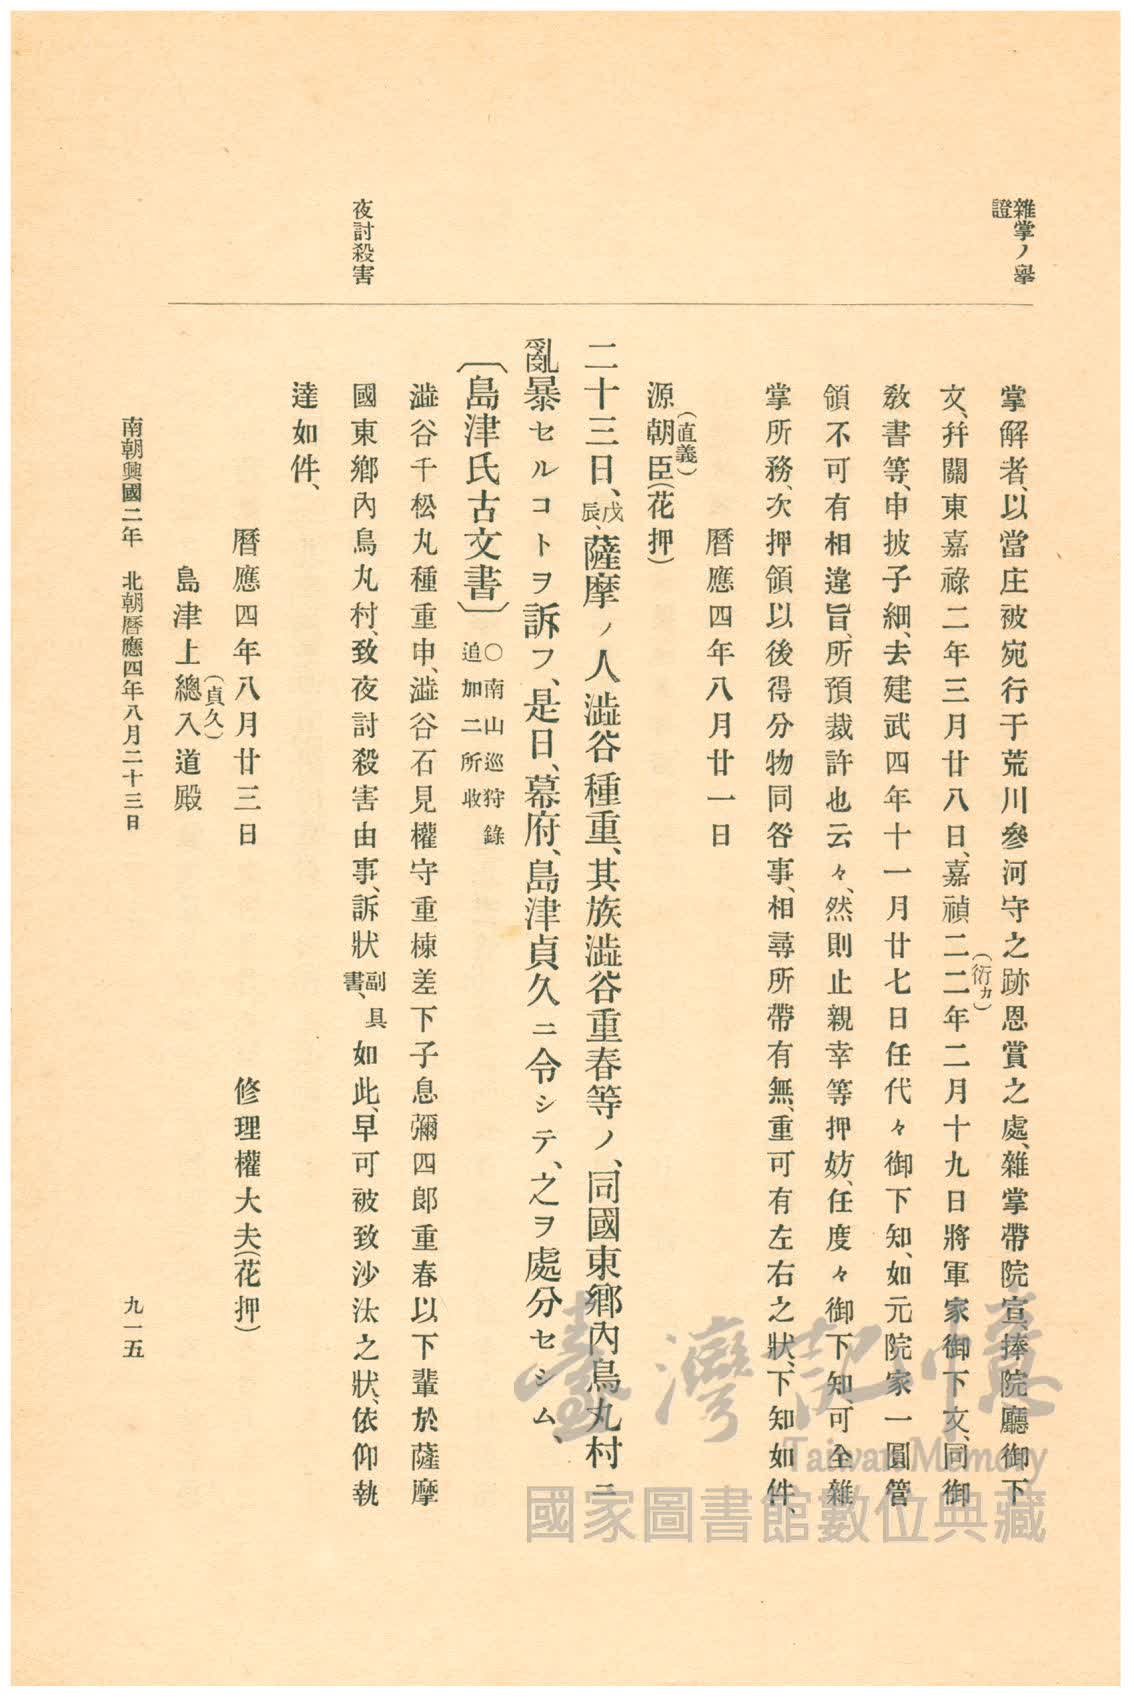 雜掌ノ擧
證
掌解者、以當庄被宛行于荒川參河守之跡恩賞之處、雜掌帶院宣、捧院廳御下
文、幷關東嘉祿二年三月廿八日、嘉禎二二年二月十九日將軍家御下文、同御
(衍カ)
教書等、申披子細、去建武四年十一月廿七日任代々御下知、如元院家一圓管
領不可有相違旨、所預裁許也云々、然則止親幸等押妨、任度々御下知、可全雜
掌所務、次押領以後得分物同咎事、相尋所帶有無、重可有左右之狀、下知如件、
曆應四年八月廿一日
源朝臣(花押)
(直義)
二十三日、戊辰、薩摩ノ人澁谷種重、其族澁谷重春等ノ、同國東鄉內鳥丸村ニ
亂暴セルコトヲ訴フ、是日、幕府、島津貞久ニ令シテ、之ヲ處分セシム、
〔島津氏古文書〕
○南山巡狩錄
追加二所收
澁谷千松丸種重申、澁谷石見權守重棟差下子息彌四郎重春以下輩於薩摩
夜討殺害
國東鄉內鳥丸村、致夜討殺害由事、訴狀副具書、如此、早可被致沙汰之狀、依仰執
達如件、
曆應四年八月廿三日 修理權大夫(花押)
島津上總入道殿
(貞久)
南朝興國二年 北朝曆應四年八月二十三日 九一五
臺灣記憶
Taiwan Memory
國家圖書館數位典藏